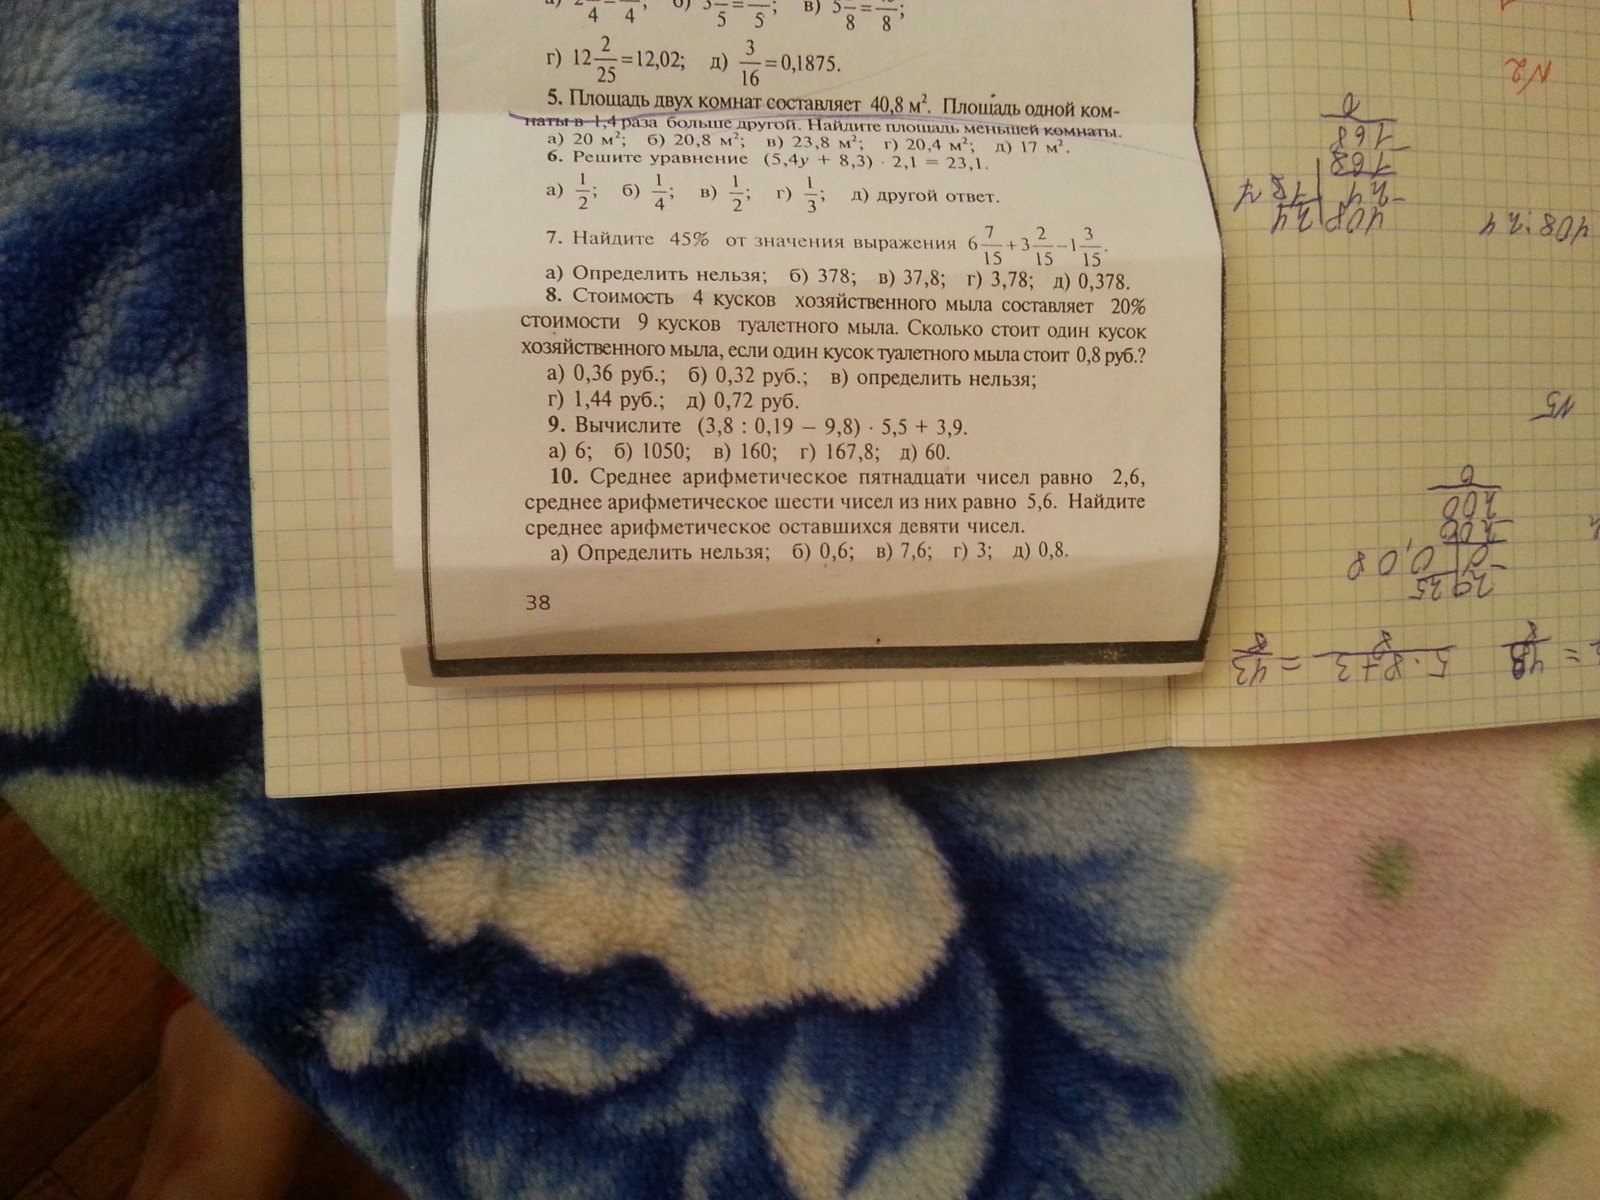 г) 12 2/25 = 12,02; д) 3/16 = 0,1875.
5. Площадь двух комнат составляет 40,8 м². Площадь одной ком-
наты в 1,4 раза больше другой. Найдите площадь меньшей комнаты.
а) 20 м²; б) 20,8 м²; в) 23,8 м²; г) 20,4 м²; д) 17 м².
6. Решите уравнение (5,4y + 8,3) · 2,1 = 23,1.
а) 1/2; б) 1/4; в) 1/2; г) 1/3; д) другой ответ.
7. Найдите 45% от значения выражения 6 7/15 + 3 2/15 − 1 3/15.
а) Определить нельзя; б) 378; в) 37,8; г) 3,78; д) 0,378.
8. Стоимость 4 кусков хозяйственного мыла составляет 20%
стоимости 9 кусков туалетного мыла. Сколько стоит один кусок
хозяйственного мыла, если один кусок туалетного мыла стоит 0,8 руб.?
а) 0,36 руб.; б) 0,32 руб.; в) определить нельзя;
г) 1,44 руб.; д) 0,72 руб.
9. Вычислите (3,8 : 0,19 − 9,8) · 5,5 + 3,9.
а) 6; б) 1050; в) 160; г) 167,8; д) 60.
10. Среднее арифметическое пятнадцати чисел равно 2,6,
среднее арифметическое шести чисел из них равно 5,6. Найдите
среднее арифметическое оставшихся девяти чисел.
а) Определить нельзя; б) 0,6; в) 7,6; г) 3; д) 0,8.
38
5·8+3/8 = 43/8
2,0 25
0 0,08
200
200
0
N5
408:24
408 24
24
168
168
0
N2